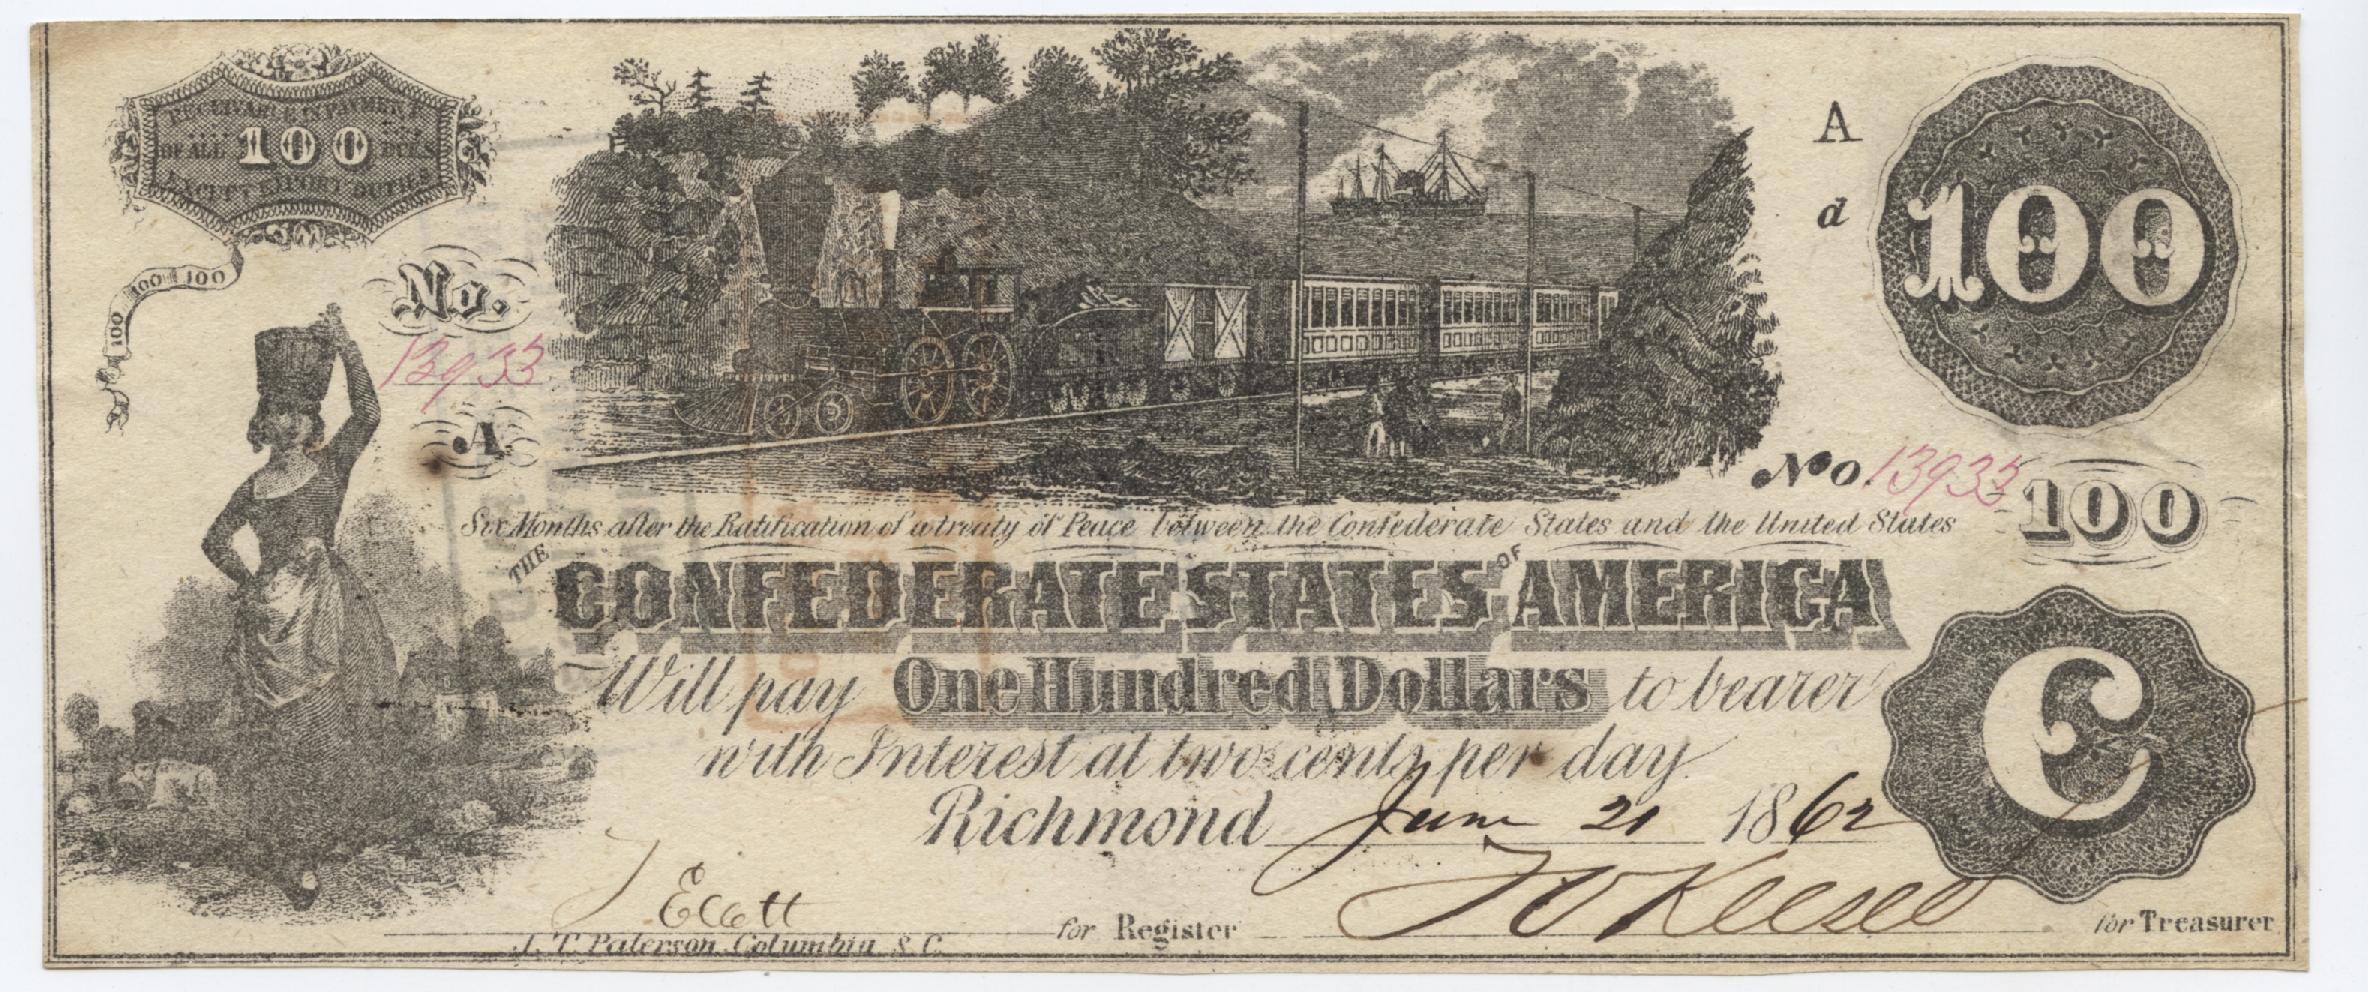 RECEIVABLE IN PAYMENT
OF ALL 100 DUES
EXCEPT EXPORT DUTIES
100 100 100
No.
13933
A.
A
d
100
No. 13933
100
Six Months after the Ratification of a treaty of Peace between the Confederate States and the United States
THE CONFEDERATE STATES OF AMERICA
Will pay One Hundred Dollars to bearer
with Interest at two cents per day
Richmond June 21 1862
C
J Ecott for Register
for Treasurer
J. T. Paterson, Columbia, S. C.